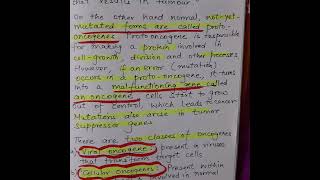 that results in tumour.
On the other hand normal, not-yet-
mutated forms are called proto-
oncogenes. Proto oncogene is responsible
for making a protein involved in
cell-growth, division and other process
However, if an error (mutation)
occurs in a proto-oncogene, it turns
into a malfunctioning gene called
an oncogene, cells start to grow
out of control, which leads to cancer
Mutations also arise in tumor
suppressor genes
There are two classes of oncogenes
Viral oncogene: present in viruses
that transform target cells
Cellular oncogenes: Present within
involved in normal